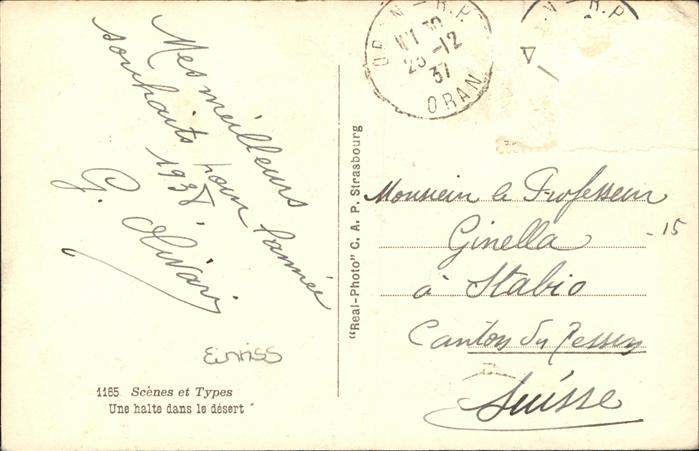 Mes meilleurs
souhaits pour l'année
1938.
G. Olivari
Einriss
1165 Scènes et Types
Une halte dans le désert
"Real-Photo" C. A. P. Strasbourg
ORAN - R.P.
25 -12
37
ORAN
R.P.
Monsieur le Professeur
Ginella
-15
à Stabio
Canton du Tessin
Suisse